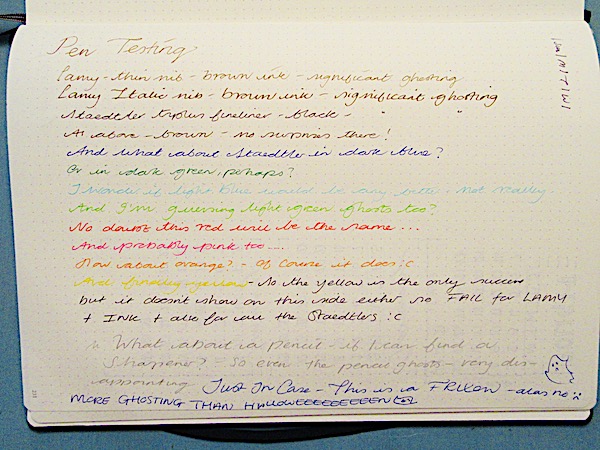 Pen Testing
Lamy - thin nib - brown ink - significant ghosting
Lamy Italic nib - brown ink - significant ghosting
Staedtler triplus fineliner - black - "
As above - brown - no surprises there!
And what about Staedtler in dark blue?
Or in dark green, perhaps?
I wonder if light blue would be any better - not really
And I'm guessing light green ghosts too?
No doubt this red will be the same ...
And probably pink too ....
How about orange? - Of course it does :(
And finally yellow - So the yellow is the only success
but it doesn't show on this side either so FAIL for LAMY
+ INK + also for all the Staedtlers :(
What about a pencil - if I can find a
Sharpener? - So even the pencil ghosts - very dis-
appointing. Just In Case - This is a FRIXON - alas no :(
MORE GHOSTING THAN HALLOWEEEEEEEEEEN